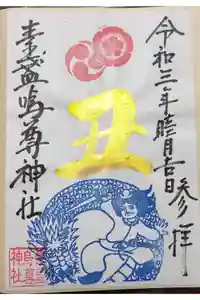 令和三年睦月吉日参拝
丑
素盞嗚尊神社